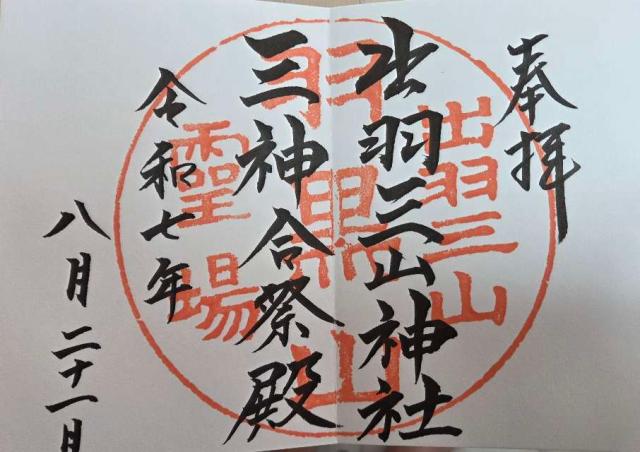 奉拝
出羽三山神社
三神合祭殿
令和七年
八月二十一日
出羽三山
羽黒山
霊場